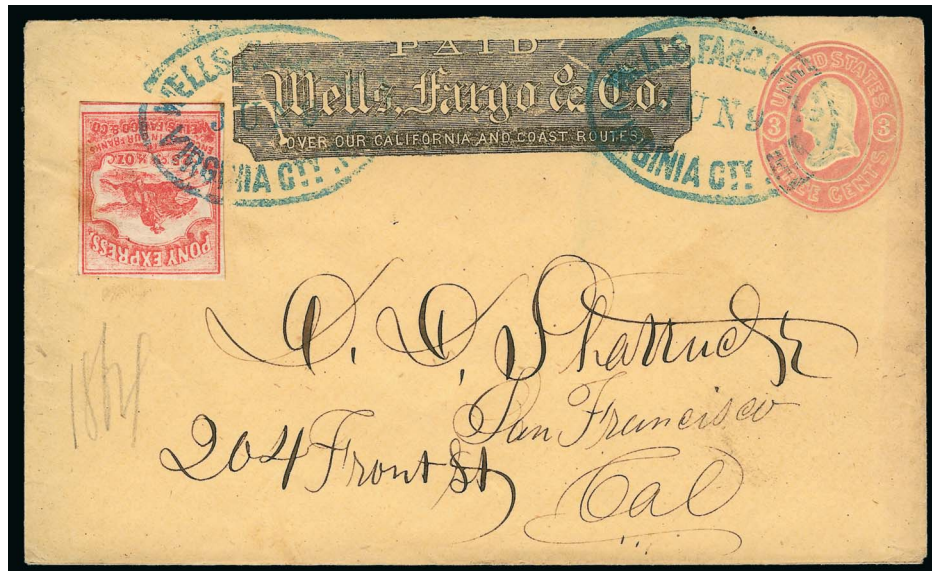 PAID
Wells, Fargo & Co.
OVER OUR CALIFORNIA AND COAST ROUTES.
WELLS,
VIRGINIA CTY
WELLS, FARGO
JUN 9
VIRGINIA CTY
UNITED STATES
3 3
THREE CENTS
½ OZ
OUR FRANKS
WELLS FARGO & CO
PONY EXPRESS
D. D. Shattuck
San Francisco
204 Front St
Cal
1864